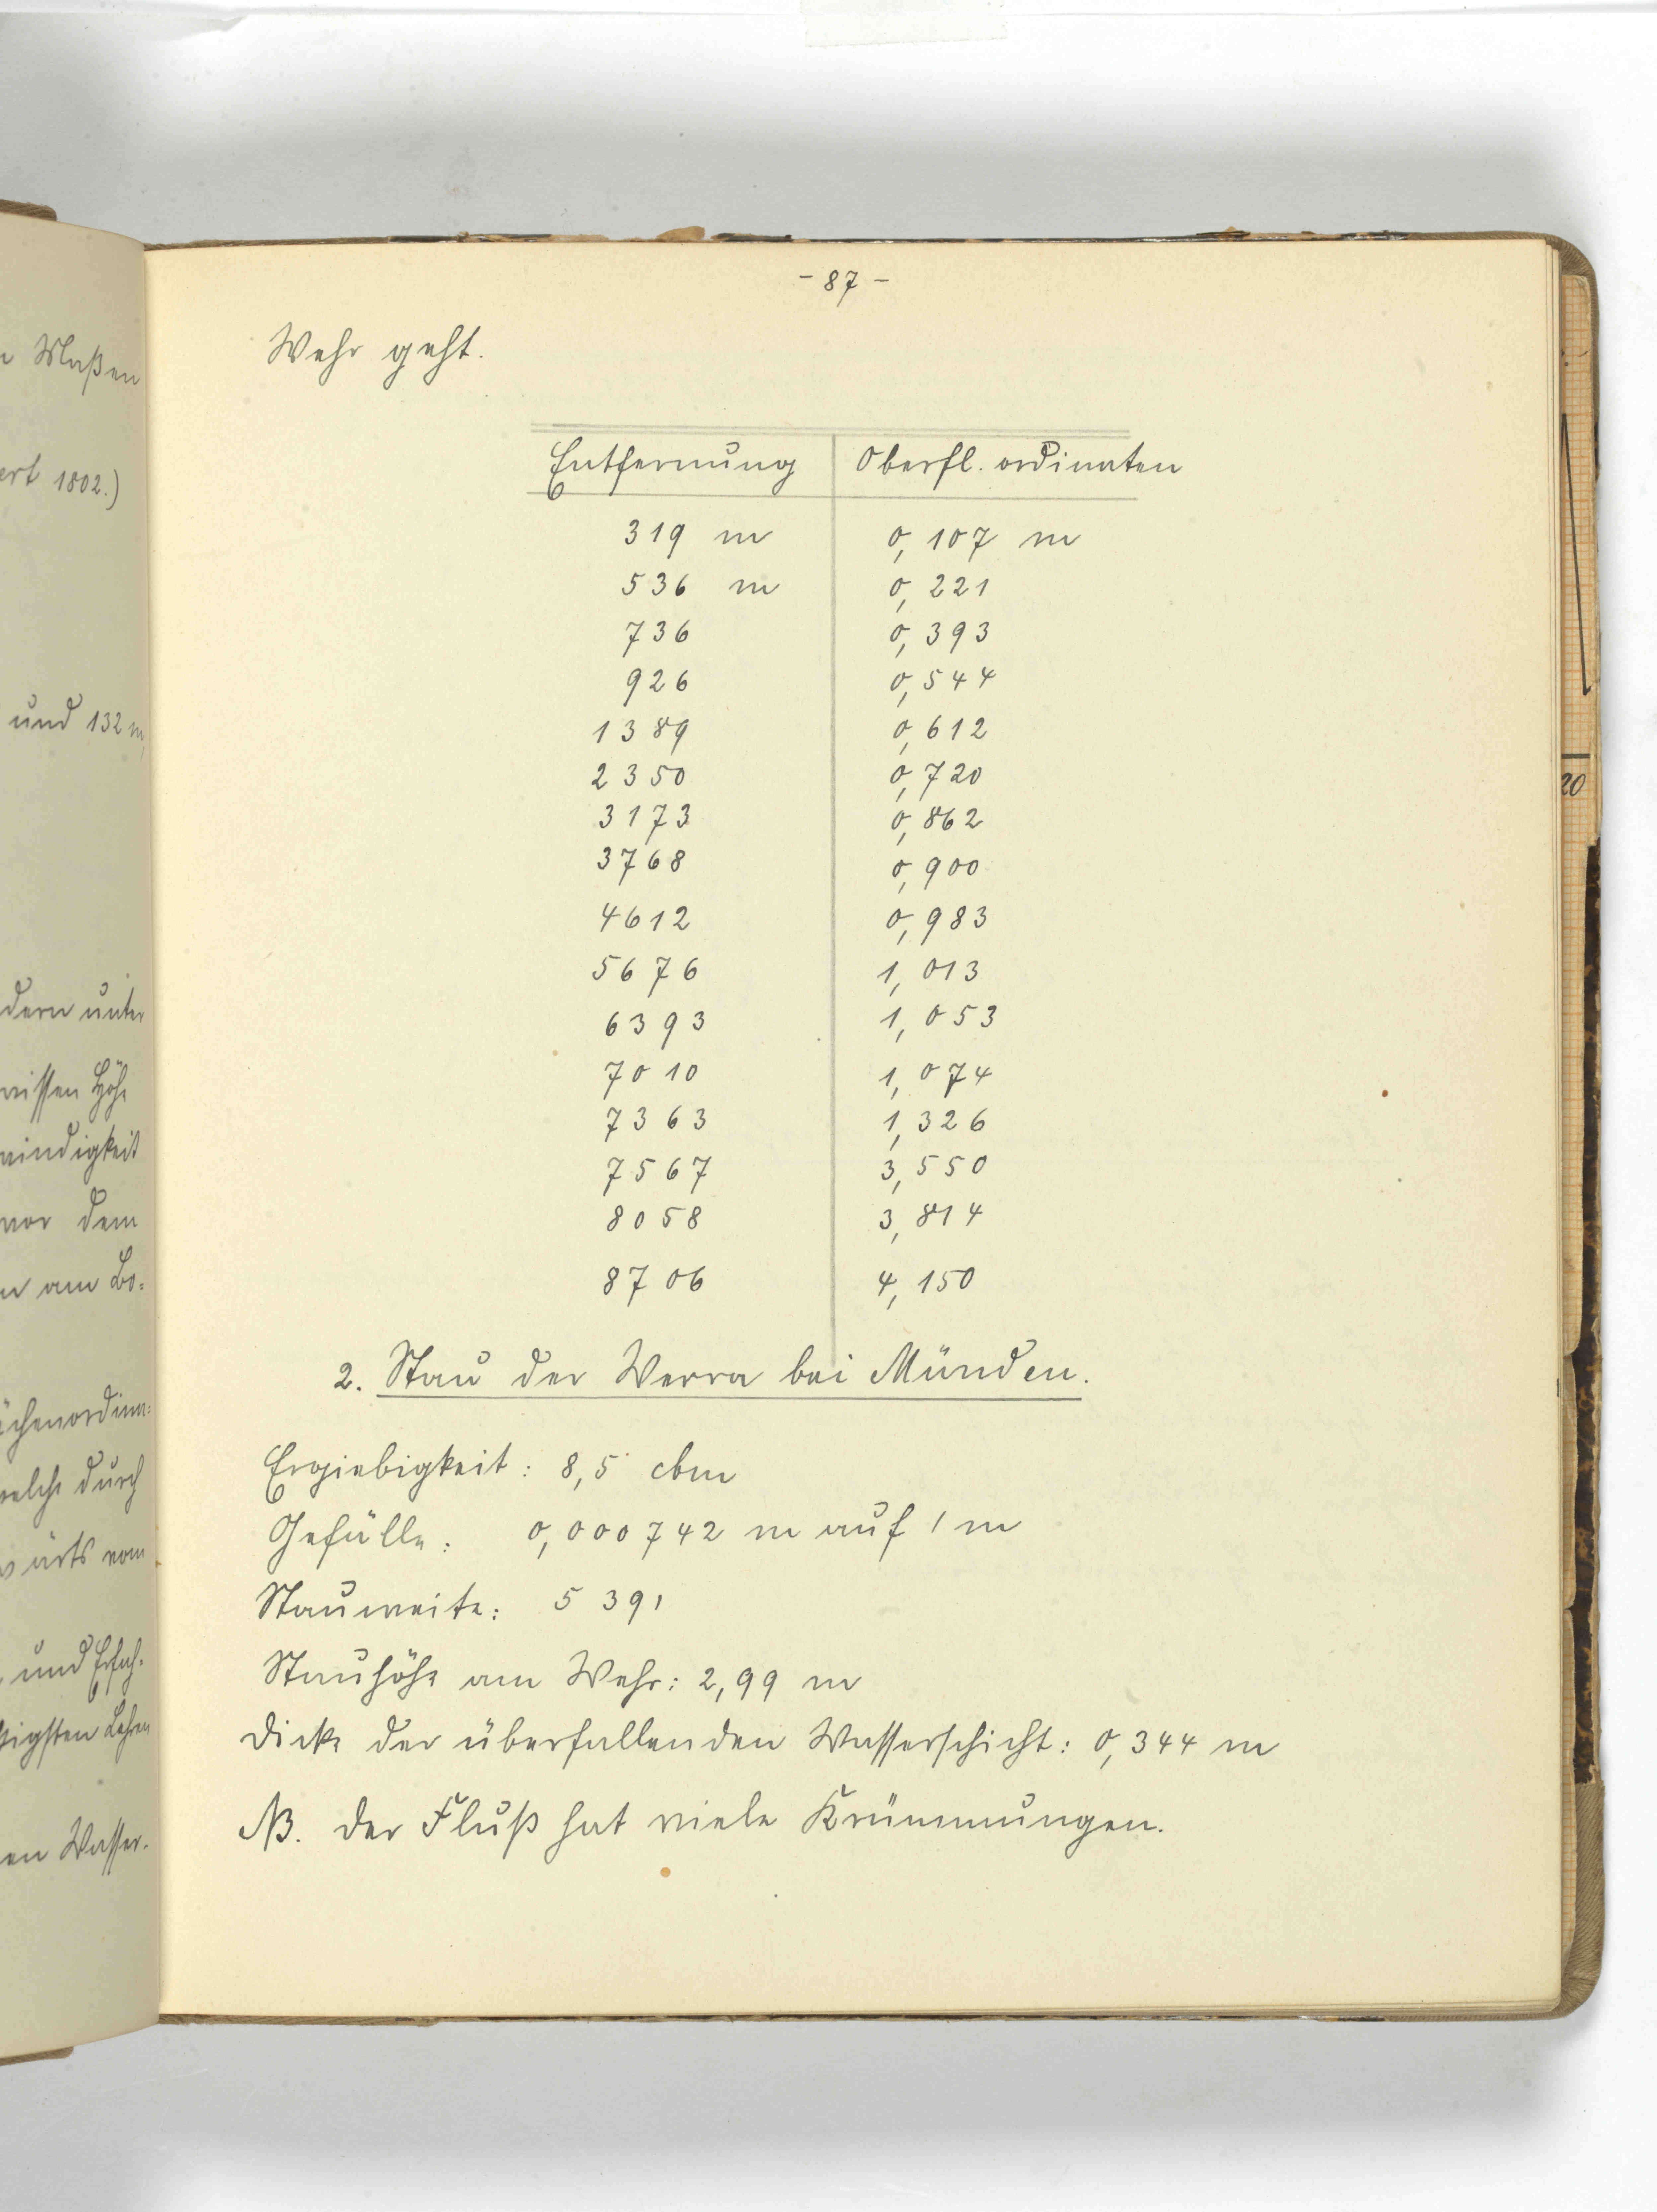 - 87 -
Wehr geht.
Entfernung Oberfl. ordinaten
319 m 0,107 m
536 m 0,221
736 0,393
926 0,544
1389 0,612
2350 0,720
3173 0,862
3768 0,900
4612 0,983
5676 1,013
6393 1,053
7010 1,074
7363 1,326
7567 3,550
8058 3,814
8706 4,150
2. Stau der Werra bei Münden.
Ergiebigkeit: 8,5 cbm
Gefälle: 0,000742 m auf 1 m
Stauweite: 5391
Stauhöhe am Wehr: 2,99 m
Dicke der überfallenden Wasserschicht: 0,344 m
NB. Der Fluß hat viele Krümmungen.
Maßen
ert 1802.)
und 132 m,
dern unter
wissen Höhe
windigkeit
vor dem
n am Bo=
ächenordina=
welche durch
wärts vom
und Erfah-
tigsten Lehren
en Wasser-
20